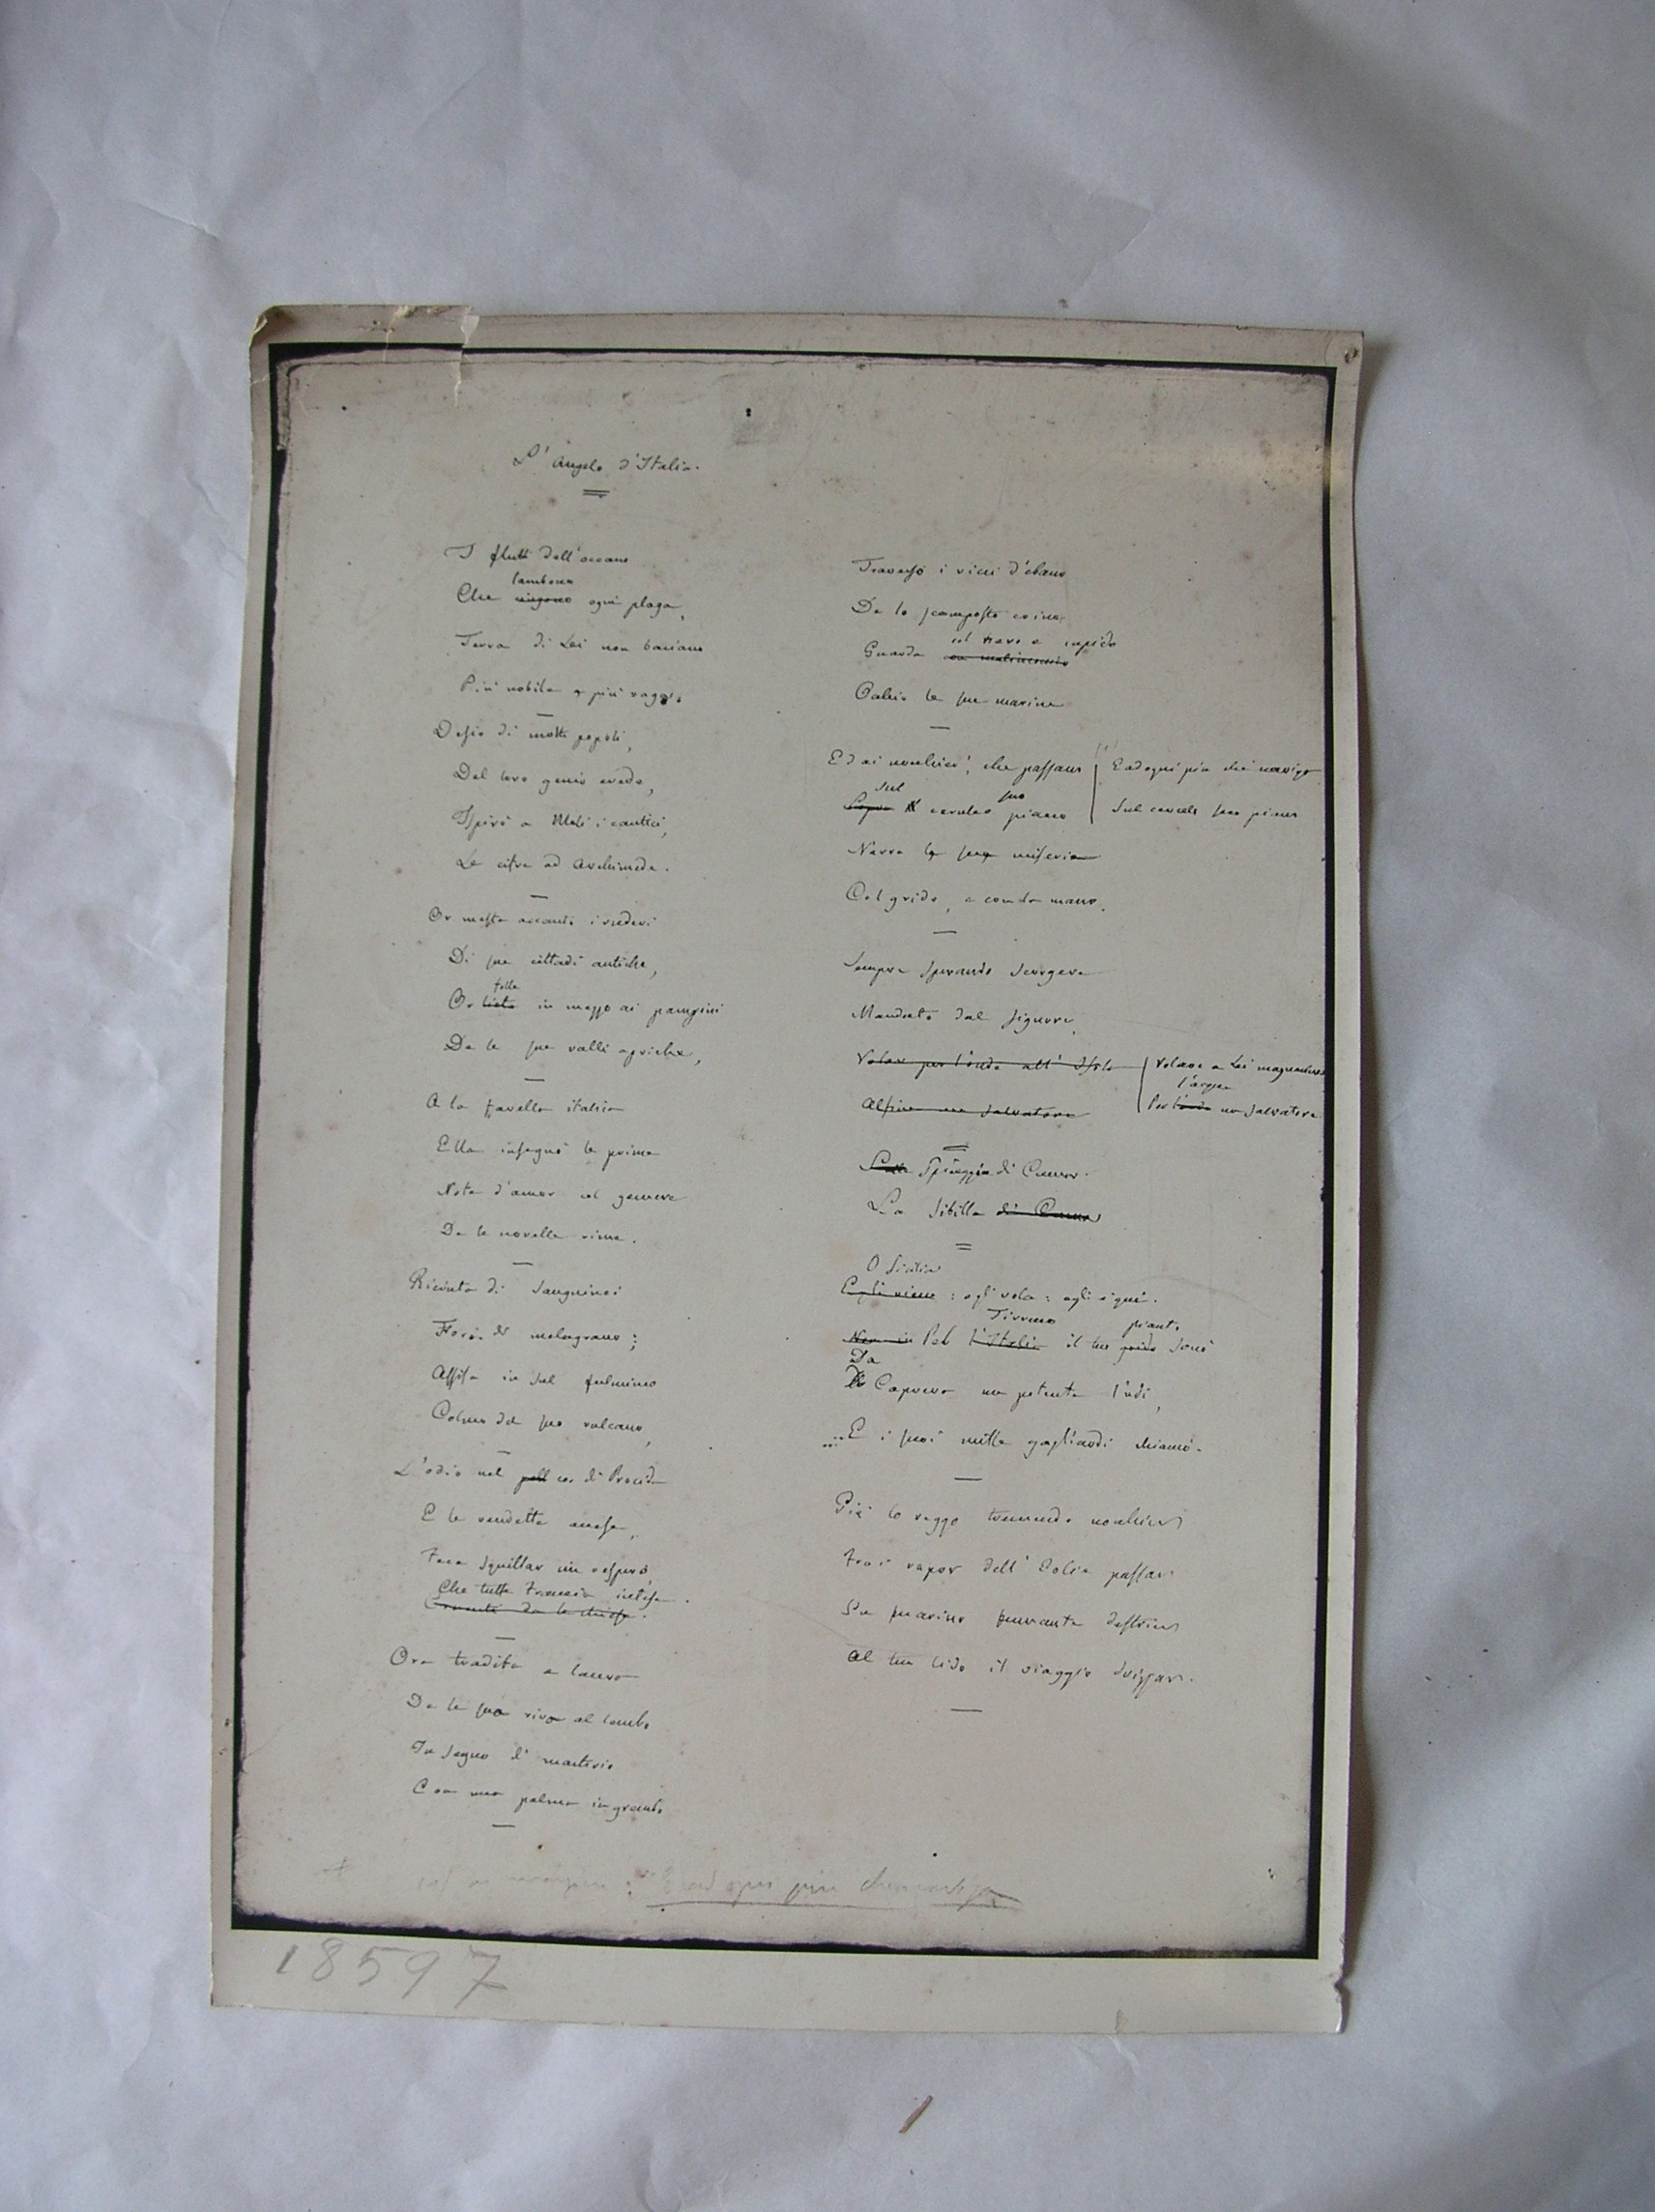 L'Angelo d'Italia.
I flutti dell'oceano
lambono
Che cingono ogni plaga,
Terra di Lei non baciano
Più nobile e più vaga.
Desio di molti popoli,
Del loro genio erede,
Ispirò a Meli i cantici,
Le cifre ad Archimede.
Or mesta accanto i ruderi
Di sue cittadi antiche,
folle
Or lieta in mezzo ai pampini
De le sue valli apriche,
A la favella italica
Ella insegnò le prime
Note d'amor col genere
De le novelle rime.
Ricinta di sanguinei
Fiori di melograno;
Assisa in sul fulmineo
Colmo del suo vulcano,
L'odio nel cor di Procida
E le vendette accese,
Fece squillar un vespro,
Che tutta Francia intese.
Ora tradita e lacera
De le sue rive al lembo
In segno di martirio
Con una palma in grembo
Traverso i ricci d'ebano
De lo scomposto crine
Guarda col nero e cupido
Calcio le sue marine
Ed ai nocchier', che passano
sul suo
Sopra il ceruleo piano
Ead ogni pin che naviga
Sul ceruleo suo piano
Narra le sue miserie
Col grido, e con la mano.
Sempre sperando scorgere
Mandato dal Signore,
Volar per l'onde all'Isola
Alfine un salvatore
Volare a Lei magnanimo
l'acque
Per l'onde un salvatore
Spiaggia di Cuma.
La Sibilla di Cuma
O Sicilia
Egli viene: egli vola: egli è qui.
Tirreno pianto
Non in Pel l'Italia il tuo grido sonò
Da
Di Caprera un potente l'udì,
E i suoi mille gagliardi chiamò.
Già lo veggo tremendo nocchiero
Fra i vapor dell'Eolie passar
Su marino fumante destriero
Al tuo lido il viaggio drizzar.
18597